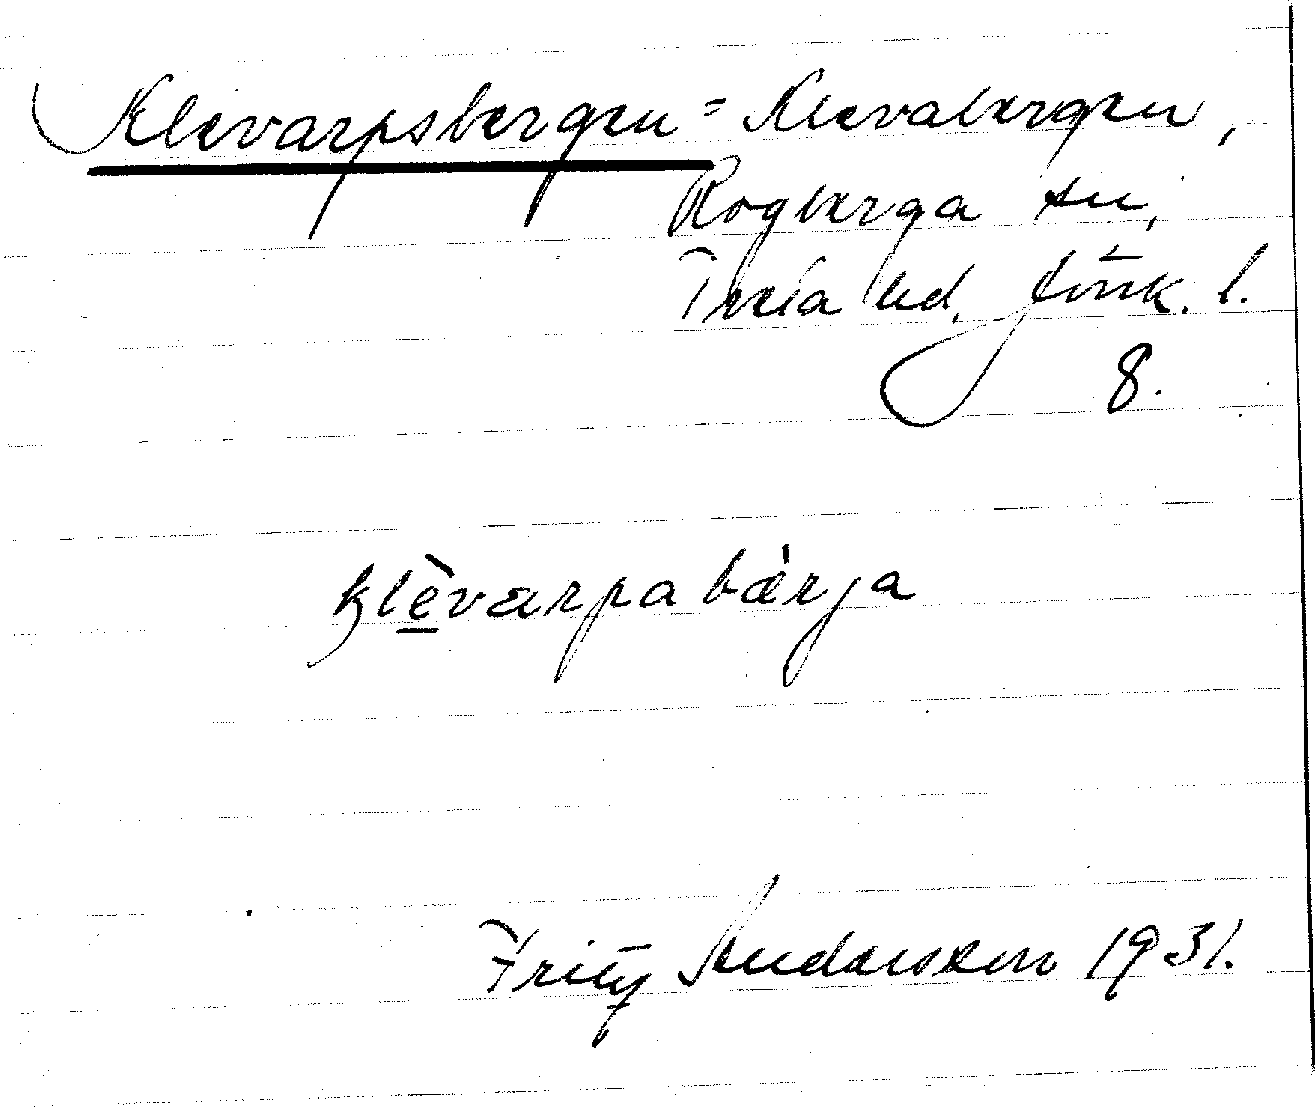 Klevarpsbergen = Klevabergen,
Rogberga sn,
Tveta hd, Jönk. l.
8.
klèvarpabärja
Fritz Andersson 1931.